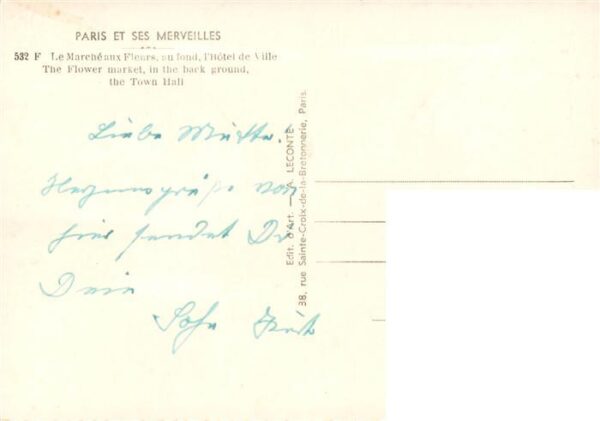 PARIS ET SES MERVEILLES
532 F Le Marché aux Fleurs, au fond, l'Hôtel de Ville
The Flower market, in the back ground,
the Town Hall
Liebe Mutter!
Herzensgrüße von
hier sendet Dir
Dein
Sohn
Edit. d'Art. — A. LECONTE
38, rue Sainte-Croix-de-la-Bretonnerie, Paris.